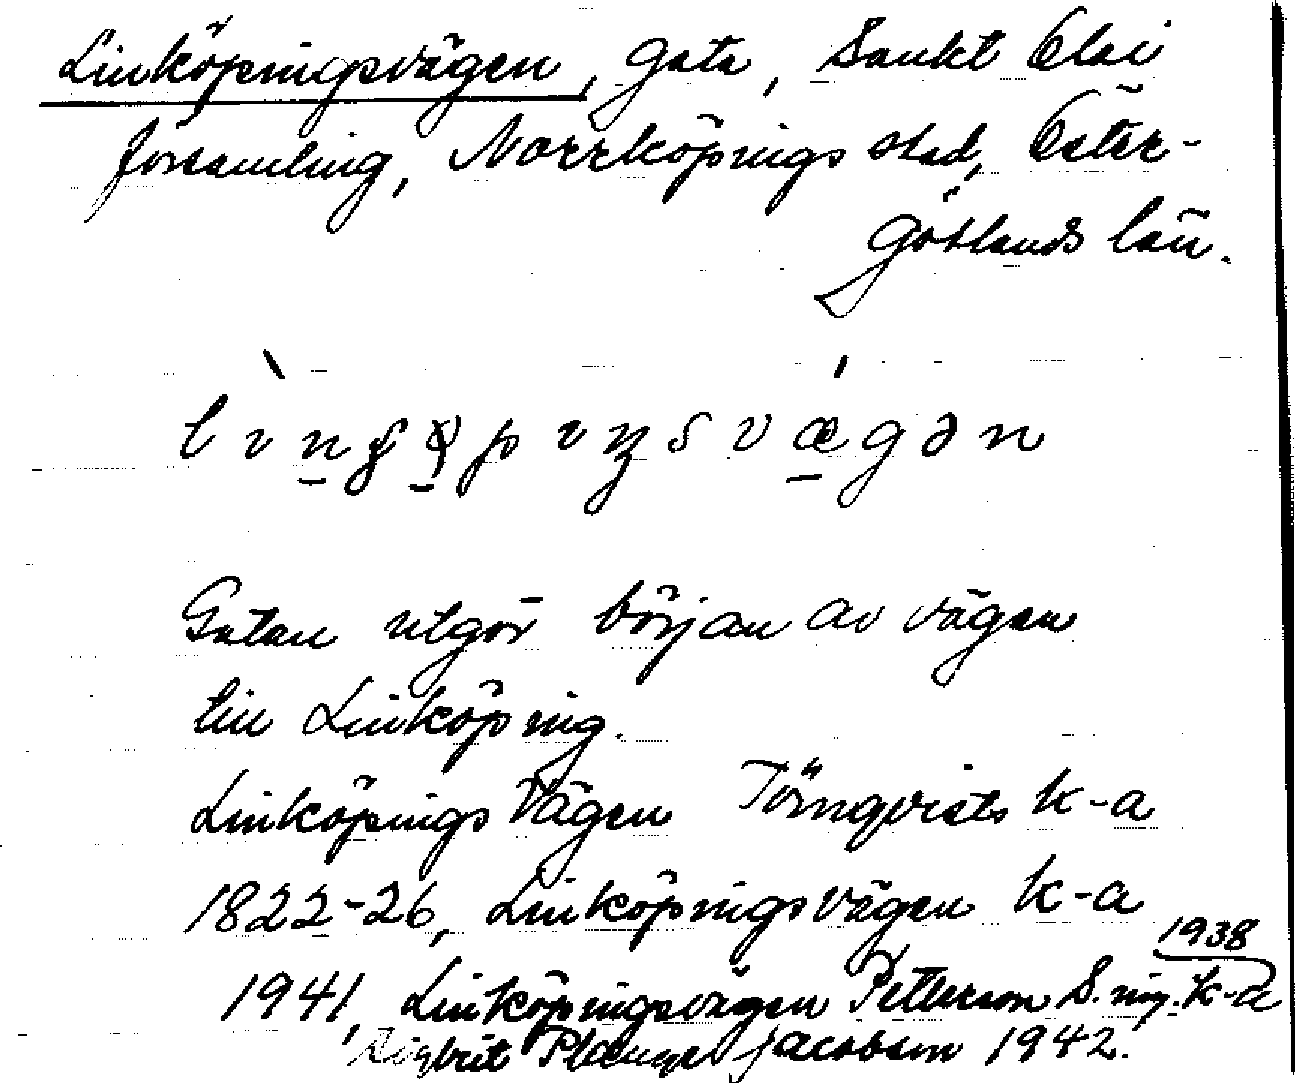 Linköpingsvägen, gata, Sankt Olai
församling, Norrköpings stad, Öster-
götlands län.
Gatan utgör början av vägen
till Linköping.
Linköpings Vägen Törnqvists k-a
1822-26, Linköpingsvägen k-a
1938
1941, Linköpingsvägen Petterson S. k-a
Jacobson 1942.